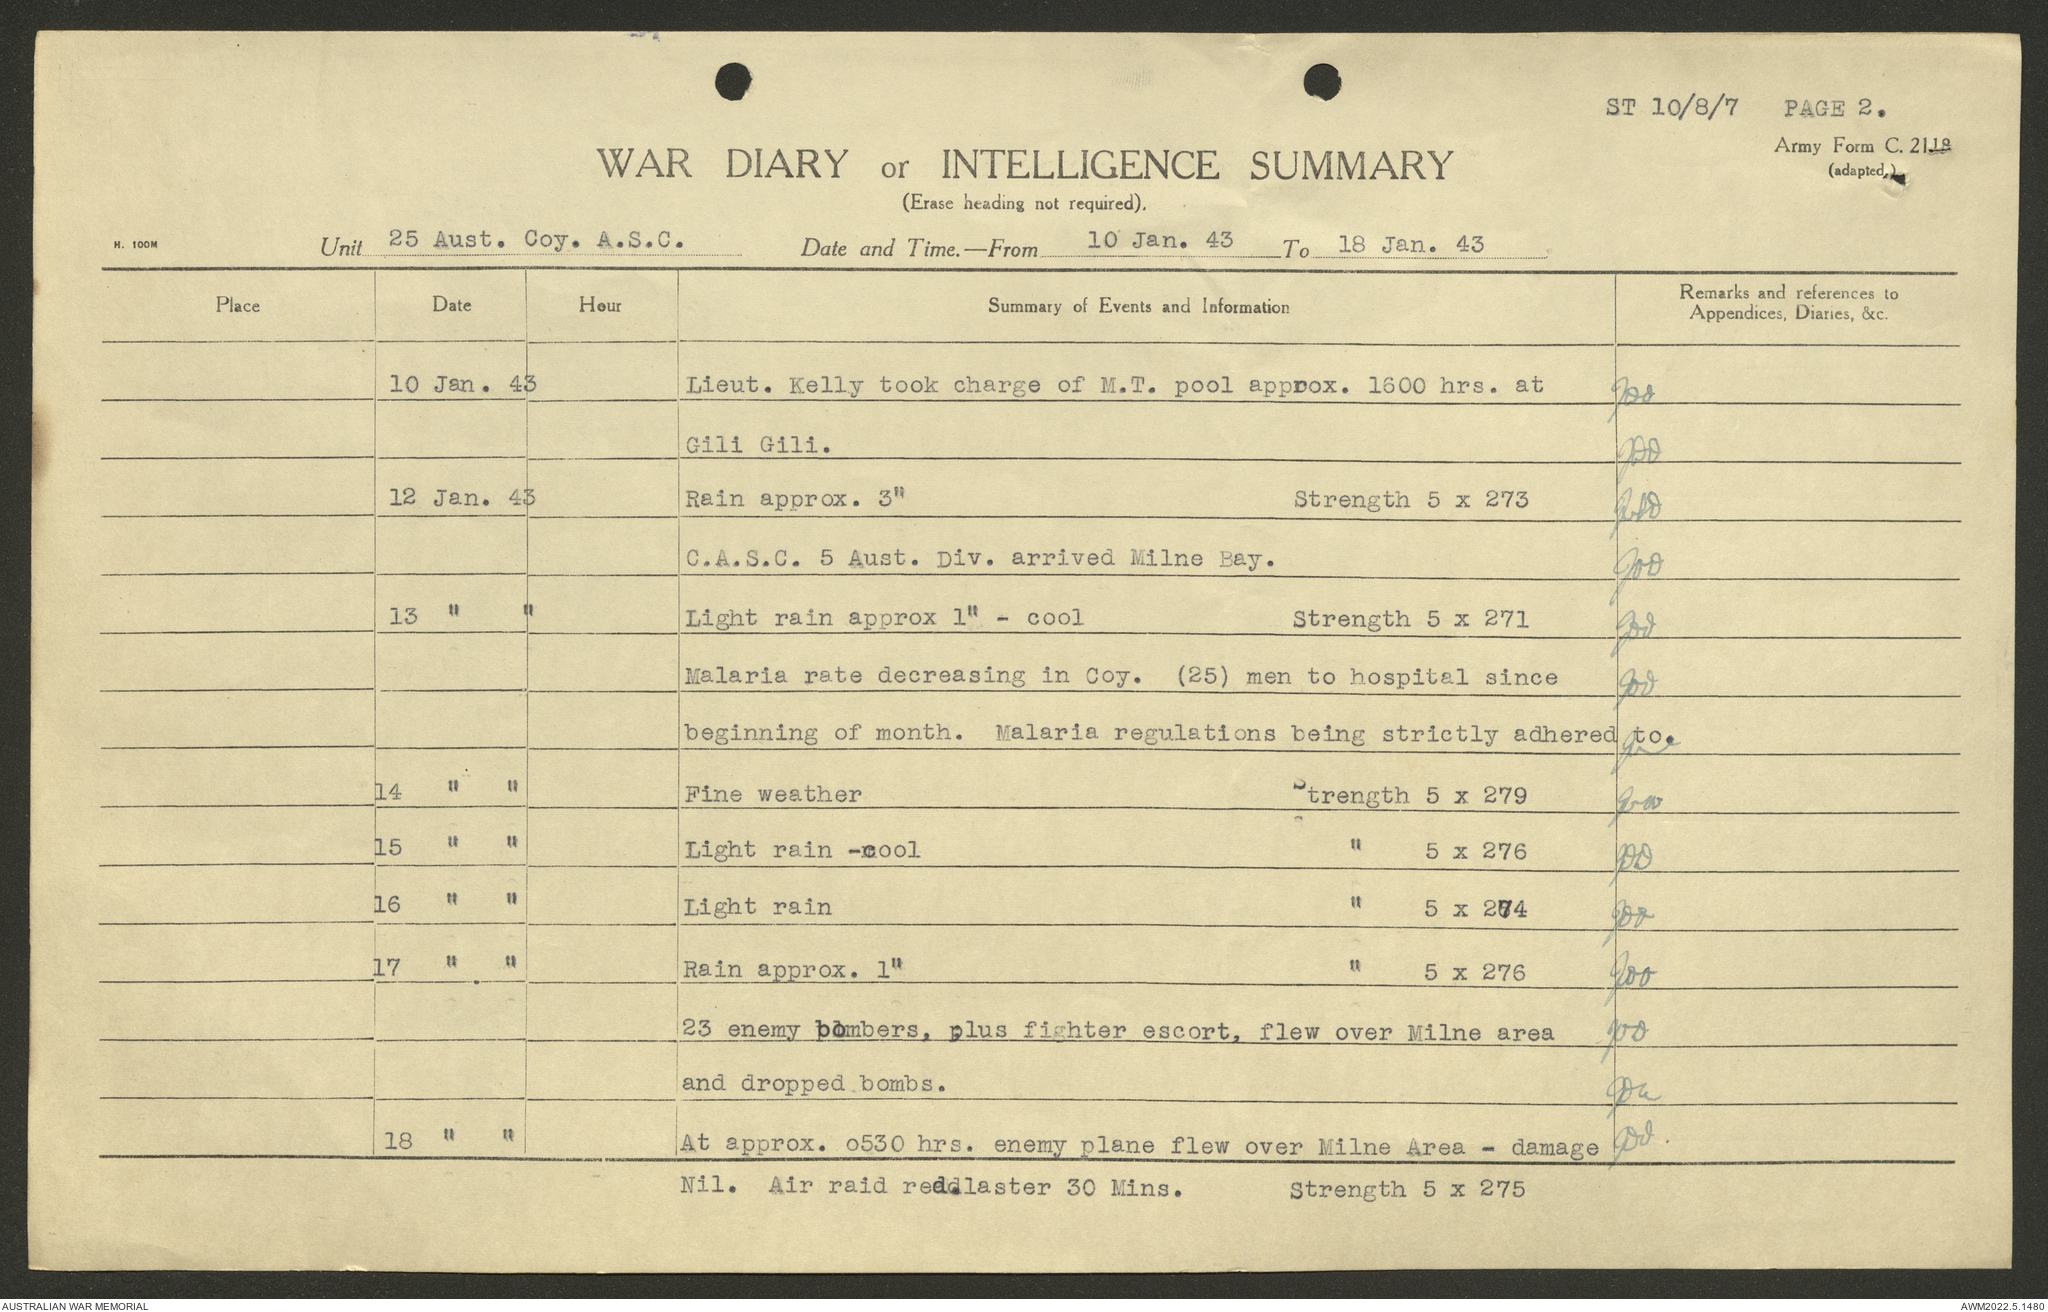 ST 10/8/7 PAGE 2.
Army Form C. 2118
(adapted.)
WAR DIARY or INTELLIGENCE SUMMARY
(Erase heading not required).
H. 100M
Unit 25 Aust. Coy. A.S.C. Date and Time.—From 10 Jan. 43 To 18 Jan. 43
Place Date Hour Summary of Events and Information Remarks and references to
Appendices, Diaries, &c.
10 Jan. 43 Lieut. Kelly took charge of M.T. pool approx. 1600 hrs. at
Gili Gili.
12 Jan. 43 Rain approx. 3" Strength 5 x 273
C.A.S.C. 5 Aust. Div. arrived Milne Bay.
13 " " Light rain approx 1" - cool Strength 5 x 271
Malaria rate decreasing in Coy. (25) men to hospital since
beginning of month. Malaria regulations being strictly adhered to.
14 " " Fine weather Strength 5 x 279
15 " " Light rain -cool " 5 x 276
16 " " Light rain " 5 x 274
17 " " Rain approx. 1" " 5 x 276
23 enemy bombers, plus fighter escort, flew over Milne area
and dropped bombs.
18 " " At approx. o530 hrs. enemy plane flew over Milne Area - damage
Nil. Air raid red laster 30 Mins. Strength 5 x 275
AUSTRALIAN WAR MEMORIAL AWM2022.5.1480